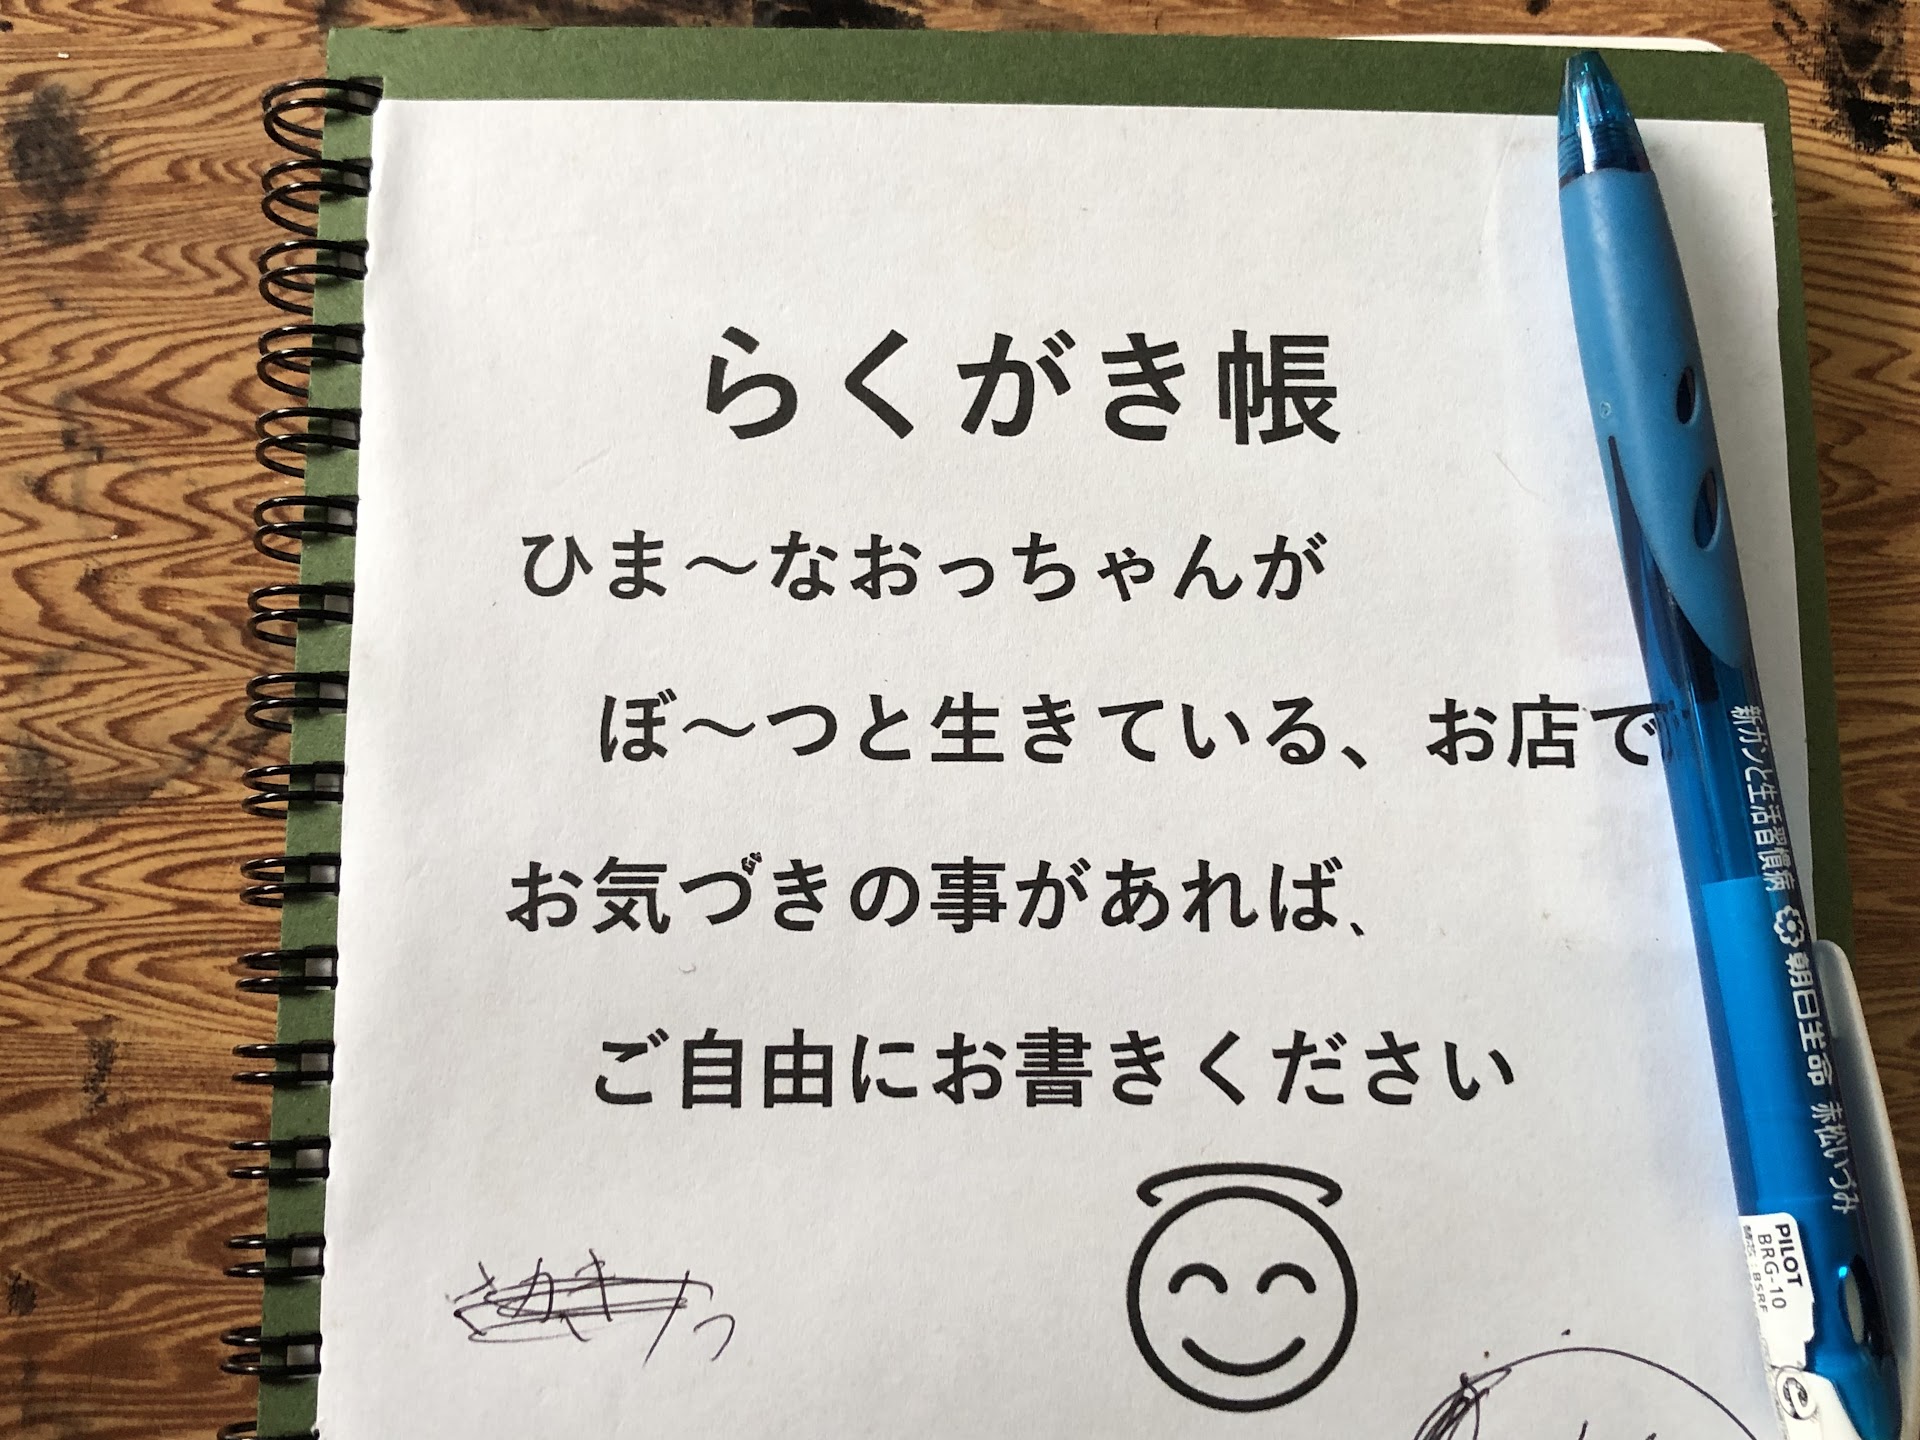 らくがき帳
ひま～なおっちゃんが
ぼ～つと生きている、お店で
お気づきの事があれば、
ご自由にお書きください
新ガンと生活習慣病 朝日生命 赤松いづみ
PILOT
BRG-10
替芯:BSRF